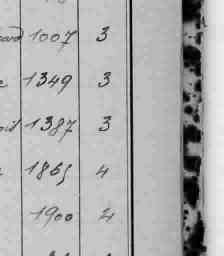 1007 3
1349 3
1387 3
1865 4
1900 4